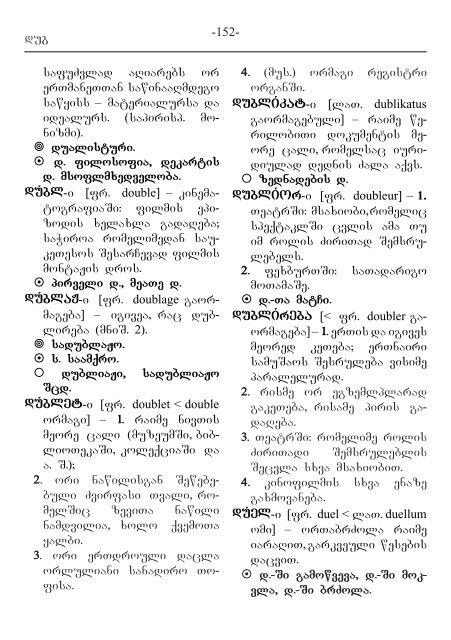 -152-
დუბ
საფუძვლად აღიარებს ორ
ერთმანეთთან საწინააღმდეგო
საწყისს – მატერიალურსა და
იდეალურს. (საპირისპ. მო-
ნიზმი).
⊚ დუალისტური.
⊙ დ. ფილოსოფია, დეკარტის
დ. მსოფლმხედველობა.
დუბლ-ი [ფრ. double] – კინემა-
ტოგრაფიაში: ფილმის ეპი-
ზოდის ხელახლა გადაღება;
საჭიროა რომელიმედან საუ-
კეთესოს შესარჩევად ფილმის
მონტაჟის დროს.
⊙ პირველი დ., მეათე დ.
დუბლაჟ-ი [ფრ. doublage გაორ-
მაგება] – იგივეა, რაც დუბ-
ლირება (მნიშ. 2).
⊚ სადუბლაჟო.
⊙ ს. საამქრო.
○ დუბლიაჟი, სადუბლიაჟო
შცდ.
დუბლეტ-ი [ფრ. doublet < double
ორმაგი] – 1. რაიმე ნივთის
მეორე ცალი (მუზეუმში, ბიბ-
ლიოთეკაში, კოლექციაში და
ა. შ.);
2. ორი ნაწილისგან შეწებე-
ბული ძვირფასი თვალი, რო-
მელშიც ზევითა ნაწილი
ნამდვილია, ხოლო ქვემოთა
ყალბი.
3. ორი ერთდროული დაცლა
ორლულიანი სანადირო თო-
ფისა.
4. (მუს.) ორმაგი რეგისტრი
ორგანში.
დუბლიკატ-ი [ლათ. dublikatus
გაორმაგებული] – რაიმე წე-
რილობითი დოკუმენტის მე-
ორე ცალი, რომელსაც იური-
დიულად დედნის ძალა აქვს.
○ ზედნადების დ.
დუბლიორ-ი [ფრ. doubleur] – 1.
თეატრში: მსახიობი, რომელიც
სპექტაკლში ცვლის ამა თუ
იმ როლის ძირითად შემსრუ-
ლებელს.
2. ფეხბურთში: სათადარიგო
მოთამაშე.
⊙ დ.-თა მატჩი.
დუბლირება [< ფრ. doubler გა-
ორმაგება] – 1. ერთის და იგივეს
მეორედ კეთება; ერთნაირი
სამუშაოს შესრულება ვისიმე
პარალელურად.
2. რისმე ორ ეგზემპლარად
გაკეთება, რისამე პირის გა-
დაღება.
3. თეატრში: რომელიმე როლის
ძირითადი შემსრულებლის
შეცვლა სხვა მსახიობით.
4. კინოფილმის სხვა ენაზე
გახმოვანება.
დუელ-ი [ფრ. duel < ლათ. duellum
ომი] – ორთაბრძოლა რაიმე
იარაღით, გარკვეული წესების
დაცვით.
⊙ დ.-ში გამოწვევა, დ.-ში მოკ-
ვლა, დ.-ში ბრძოლა.